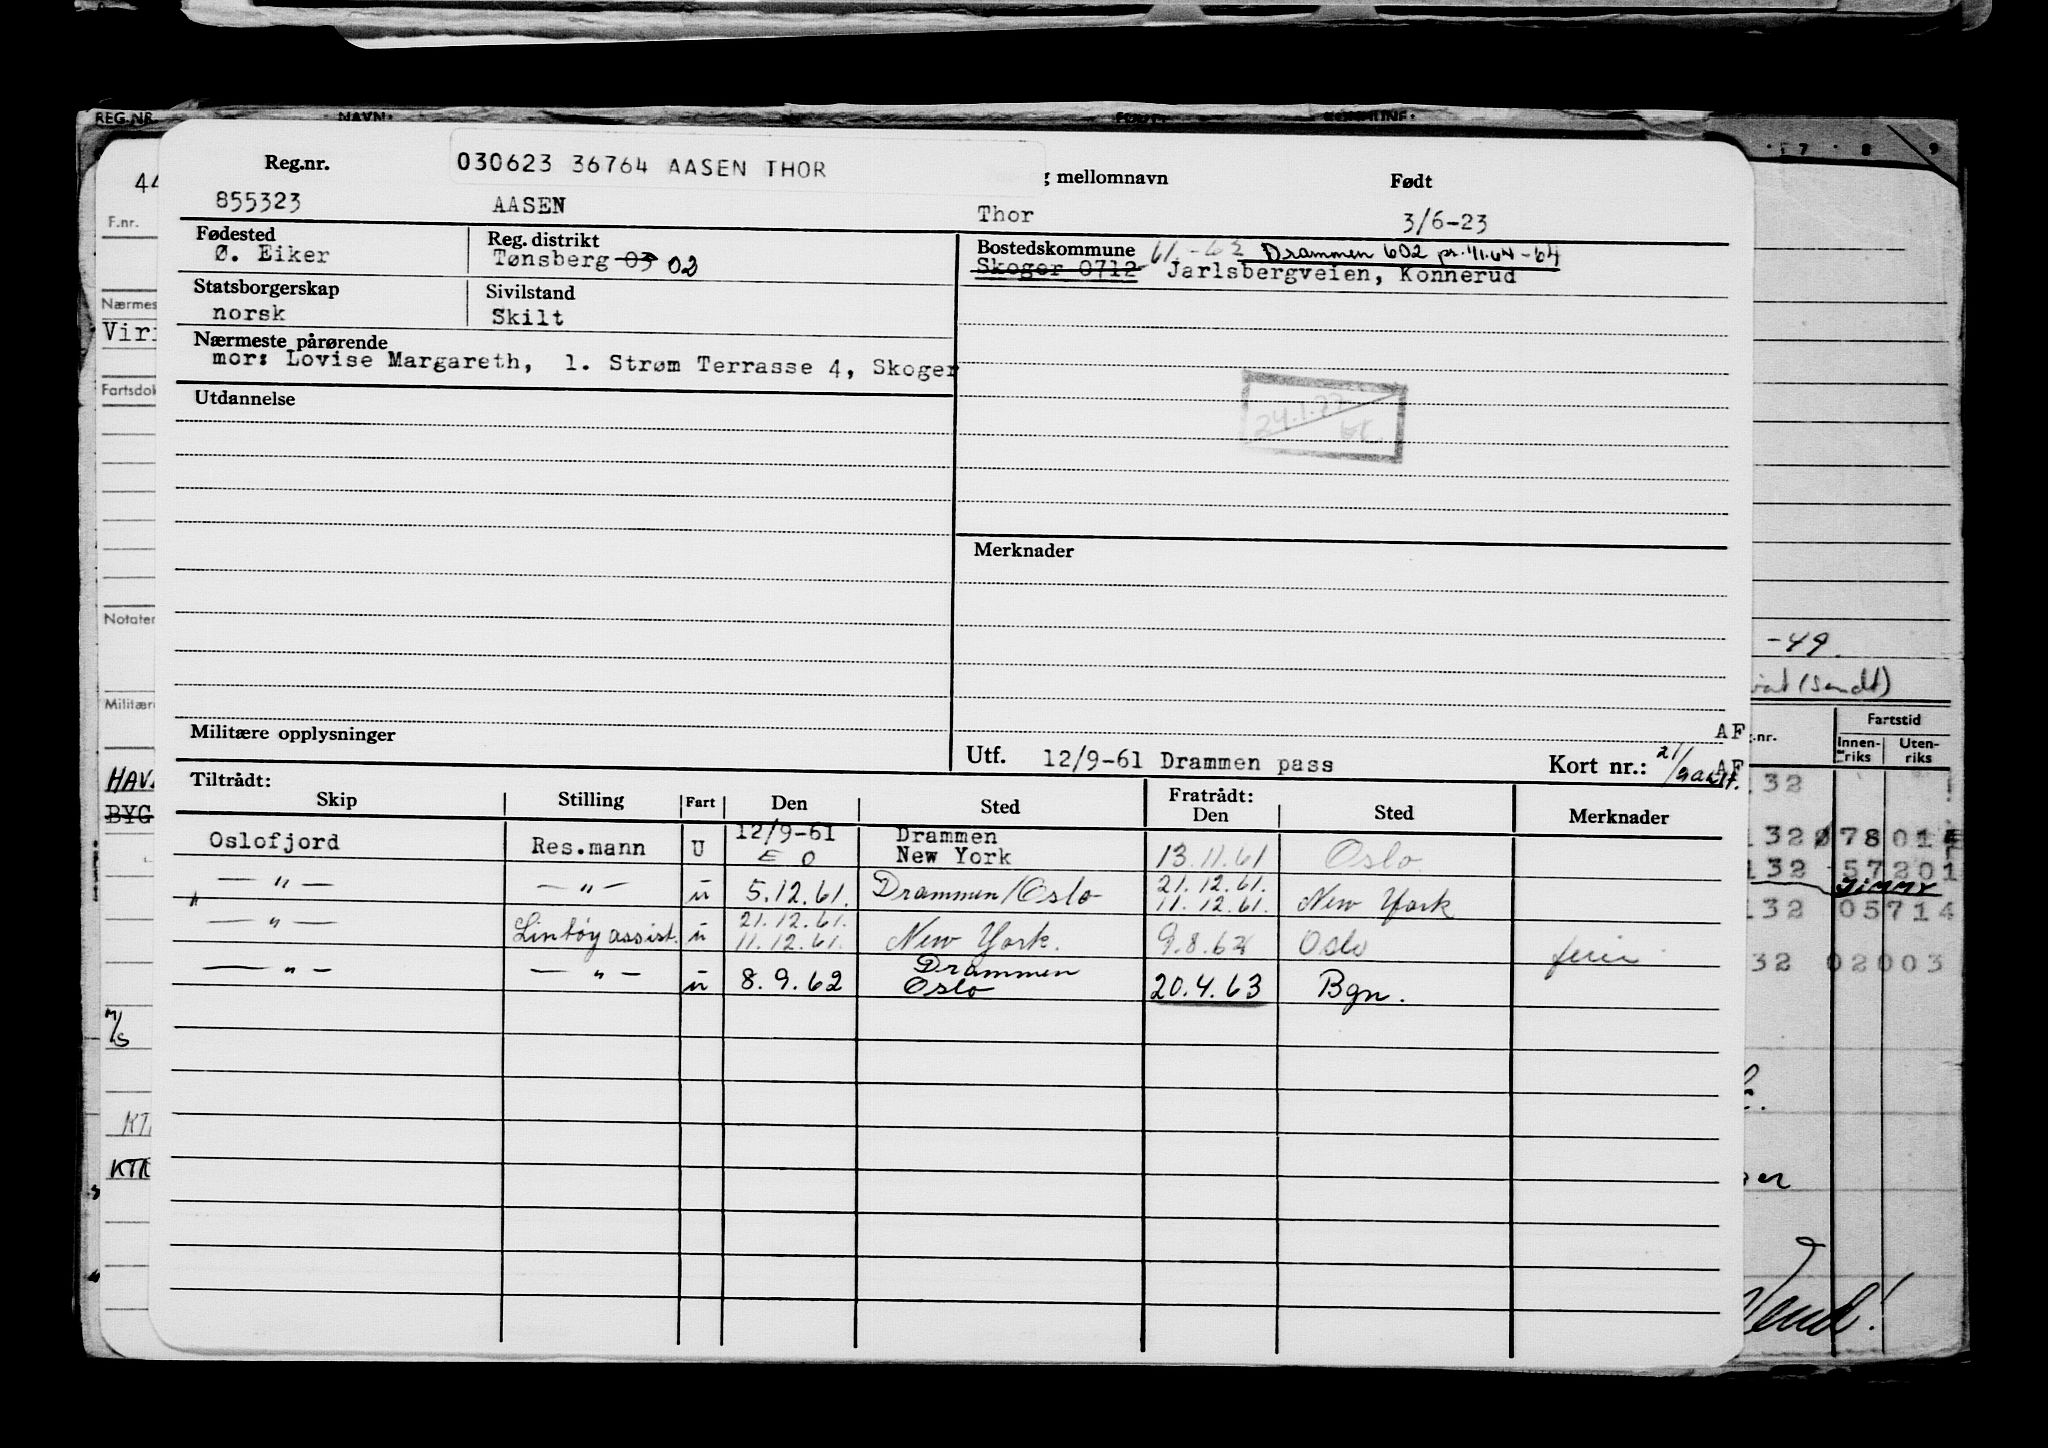 REG.NR. NAVN: FØDT: KOMMUNE:
030623 36764 AASEN THOR
Reg.nr. g mellomnavn Født
44
855323 AASEN Thor 3/6-23
F.nr.
Fødested Reg. distrikt Bostedskommune 61.-63 Drammen 602 pr. 1/1.64-64
Ø. Eiker Tønsberg 03 02 Skoger 0712 Jarlsbergveien, Konnerud
Statsborgerskap Sivilstand
norsk Skilt
Nærmeste pårørende
mor: Lovise Margareth, 1. Strøm Terrasse 4, Skoger
Utdannelse
24.1.77
Merknader
Notater
-49.
(sendt)
Militære opplysninger
AF
Utf. 12/9-61 Drammen pass Kort nr.: 21/
AF
Fartstid
.nr. Innen-riks Uten-riks
Tiltrådt: Fratrådt:
Skip Stilling Fart Den Sted Den Sted Merknader
Oslofjord Res.mann U 12/9-61 E O Drammen New York 13.11.61 Oslo
— " — — " — u 5.12.61. Drammen/Oslo 21.12.61. 11.12.61. New York
— " — Lintøyassist. u 21.12.61. 11.12.61. New York. 9.8.62 Oslo ferie
— " — — " — u 8.9.62 Drammen Oslo 20.4.63 Bgn.
132
132 Ø7801
132 57201
132 05714
32 02003
M/S
Vend!